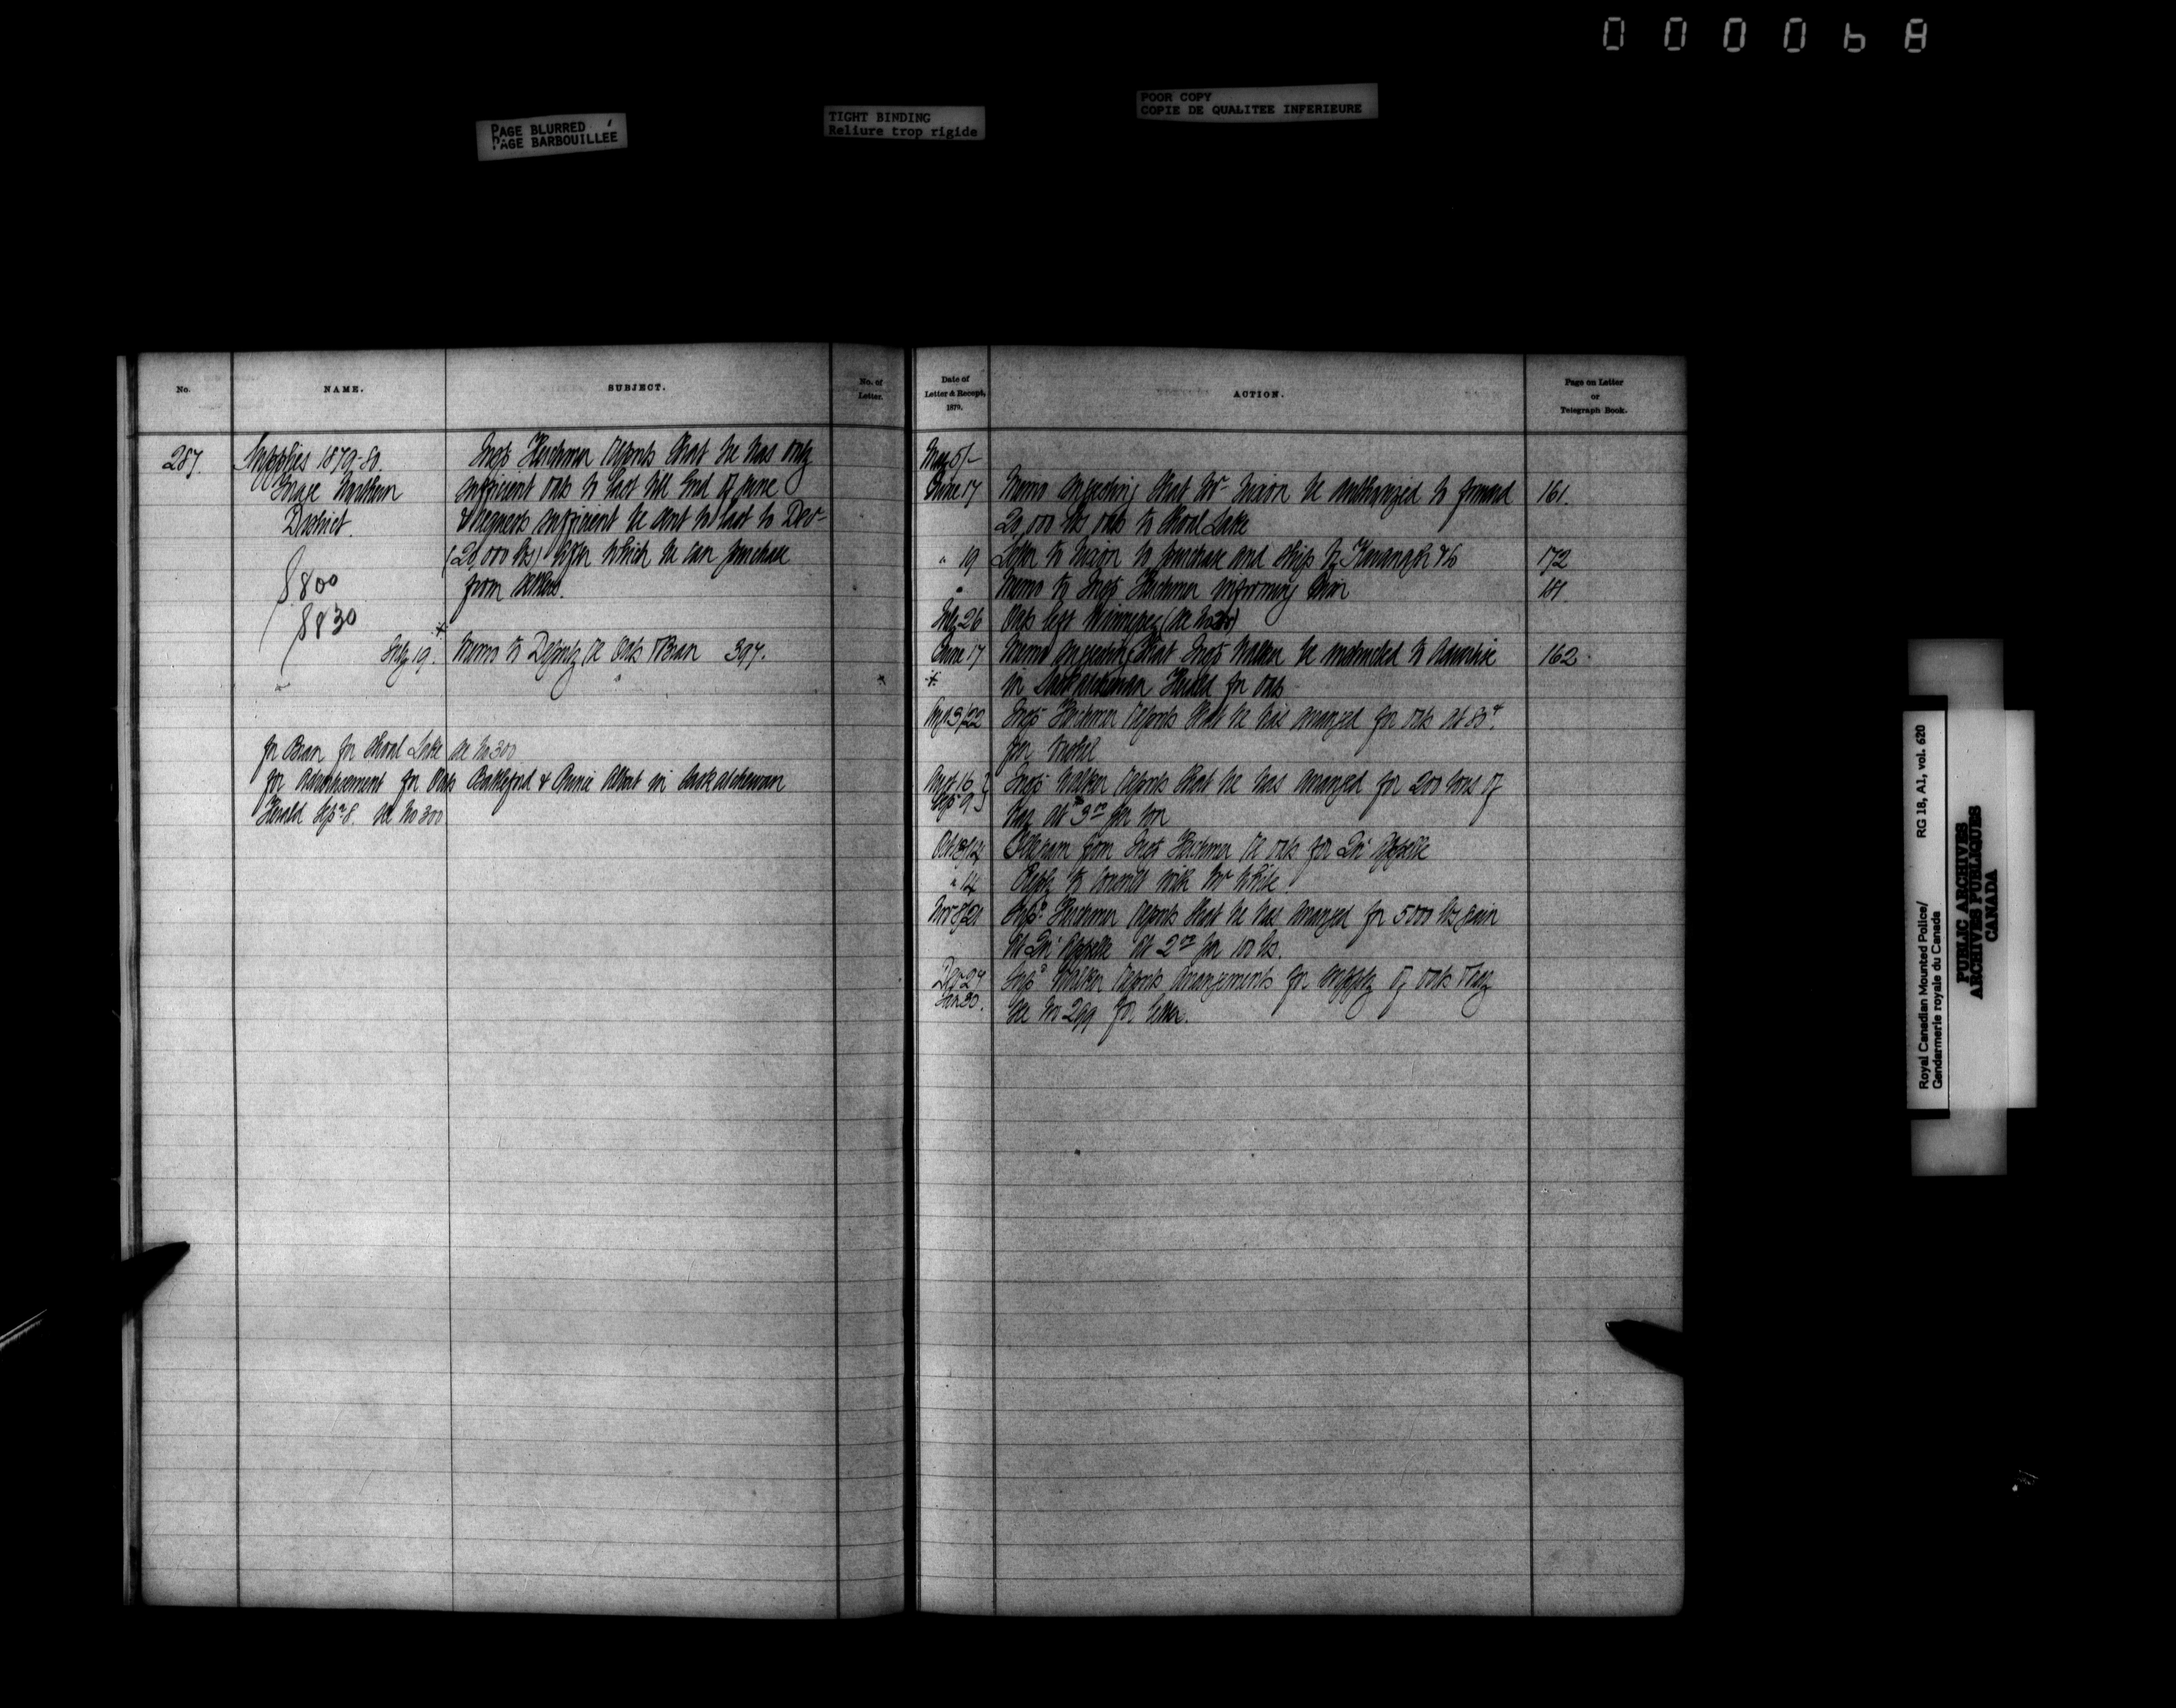 000068
PAGE BLURRED
PAGE BARBOUILLÉE
TIGHT BINDING
Reliure trop rigide
POOR COPY
COPIE DE QUALITEE INFERIEURE
No.
NAME.
SUBJECT.
No. of
Letter.
287.
Supplies 1879-80.
Forage Northern
District.
8800
8830
Insp Herchmer reports that he has only
sufficient oats to last till End of June
& requests sufficient be sent to last to Dec-
(20,000 lbs) after which he can purchase
from settlers.
July 19. Memo to Deputy re Oats & Bran 397.
for Bran for Shoal Lake see No 300
for Advertisement for Oats Battleford & Prince Albert in Saskatchewan
Herald Sepr 8. see No 300
Date of
Letter & Receipt,
1879.
ACTION.
Page on Letter
or
Telegraph Book.
May 5/-
June 17 Memo suggesting that Mr Nixon be authorized to forward 161.
20,000 lbs oats to Shoal Lake
" 19 Letter to Nixon to purchase and ship by Kavanagh & Co 172
" Memo to Insp Herchmer informing him
July 26 Oats left Winnipeg
June 17 Memo suggesting that Insp Walker be instructed to advertise 162.
in Saskatchewan Herald for oats
Insp Herchmer reports that he has arranged for oats at 80¢
per bushel
Augt 16 Insp Walker reports that he has arranged for 200 tons of
Sept 9 hay at per ton
Telegram from Insp Herchmer re oats for Qu'Appelle
" 14 Reply to consult with Mr White
Supt Herchmer reports that he has arranged for 5000 lbs grain
at Qu'Appelle at 2 per 100 lbs.
Dec 27 Supt Walker reports arrangements for supply of oats & hay
Jan 30. See No 299 for letter.
Royal Canadian Mounted Police/ RG 18, A1, vol. 620
Gendarmerie royale du Canada
PUBLIC ARCHIVES
ARCHIVES PUBLIQUES
CANADA